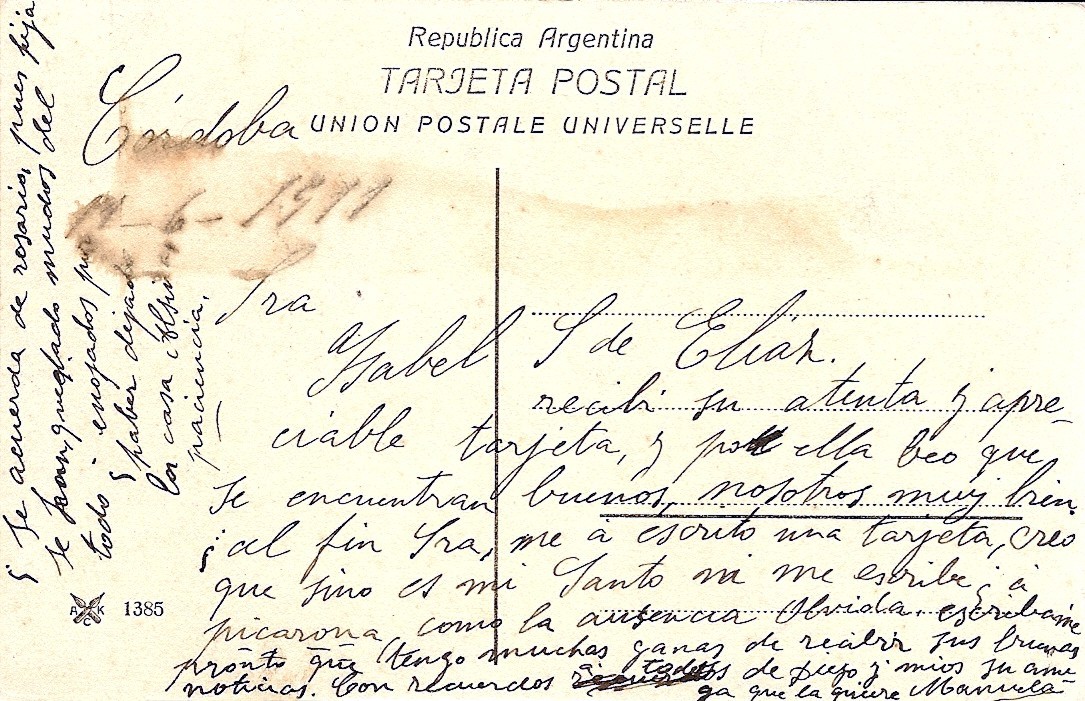 Republica Argentina
TARJETA POSTAL
UNION POSTALE UNIVERSELLE
Córdoba
11-6-1911
Sra
Ysabel S de Elián.
recibi su atenta y apre-
ciable tarjeta, y por ella beo que
se encuentran buenos, nosotros muy bien.
¡al fin Sra, me à escrito una tarjeta, creo
que sino es mi Santo ni me escribe; à
picarona, como la ausencia olvida. escribame
pronto que tengo muchas ganas de recibir sus buenas
noticias. Con recuerdos à todos de pepo y mios su ami
ga que la quiere Manuela
ACK 1385
¿ Se acuerda de rosario, pues hija
se han quedado mudos del
todo ¿ enojados por
haber dejado
los casa
paciencia.